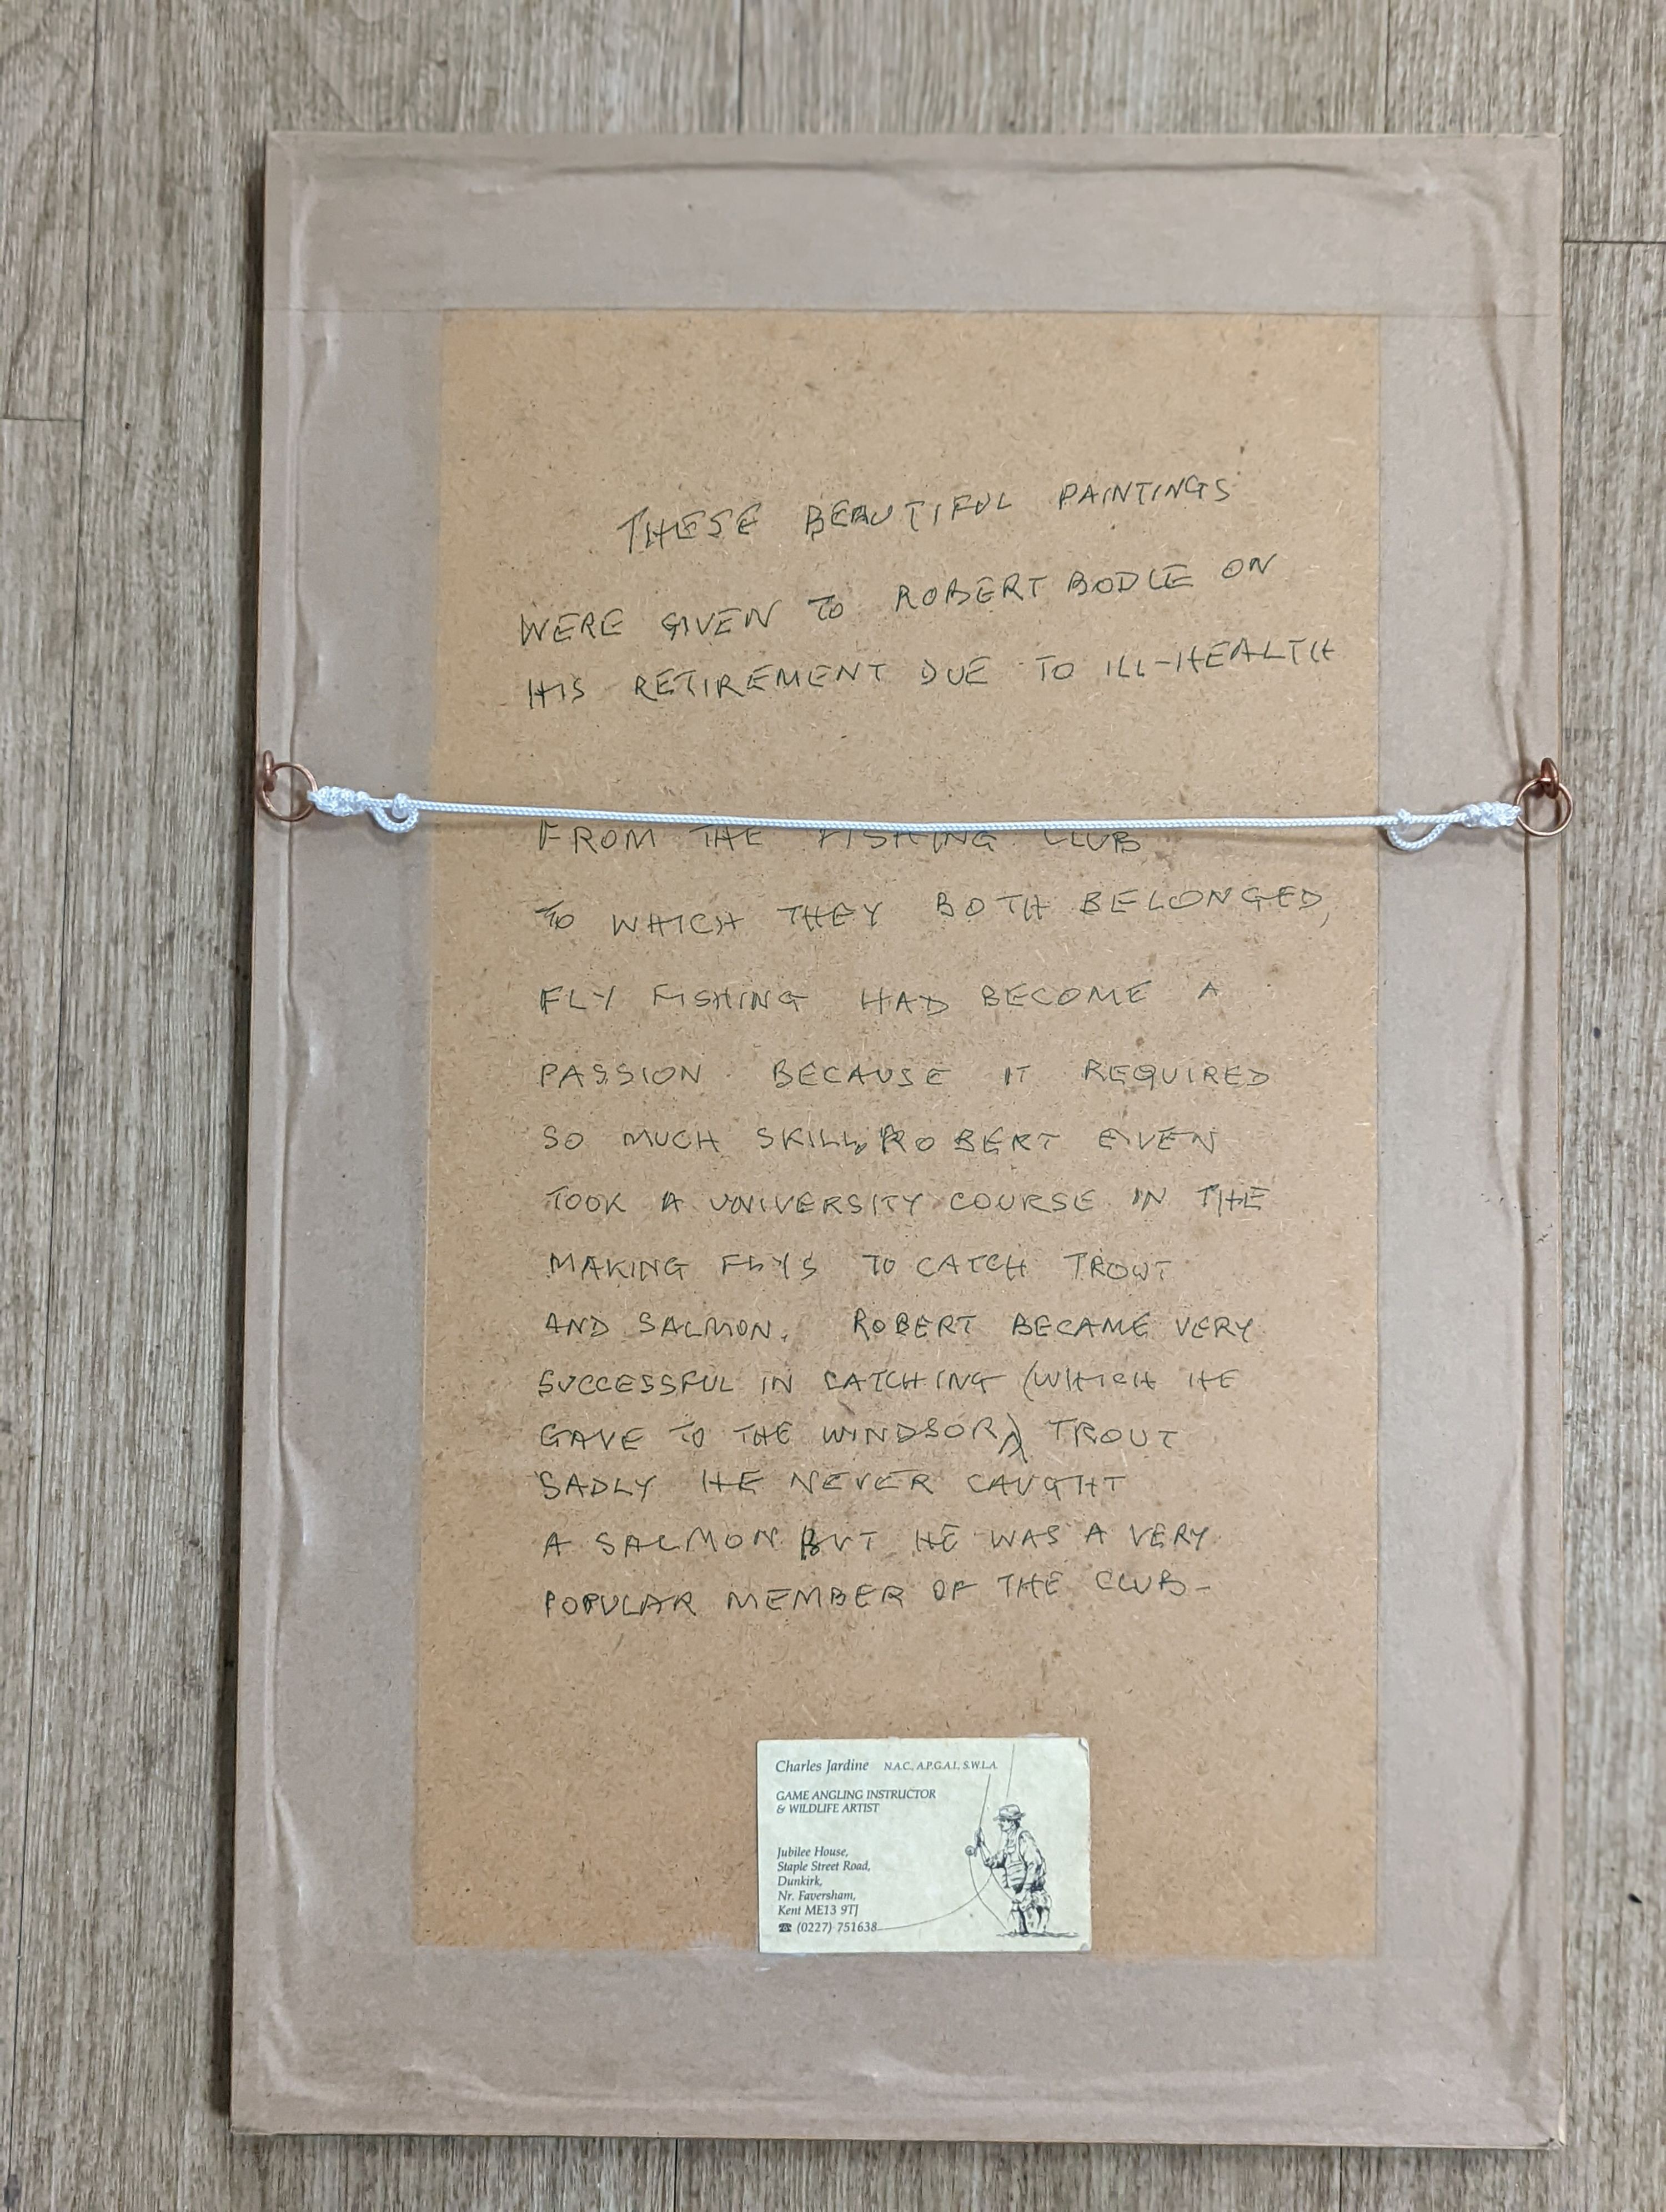 THESE BEAUTIFUL PAINTINGS
WERE GIVEN TO ROBERT BODLE ON
HIS RETIREMENT DUE TO ILL-HEALTH
FROM THE FISHING CLUB
TO WHICH THEY BOTH BELONGED,
FLY FISHING HAD BECOME A
PASSION BECAUSE IT REQUIRED
SO MUCH SKILL, ROBERT EVEN
TOOK A UNIVERSITY COURSE IN THE
MAKING FLYS TO CATCH TROUT
AND SALMON. ROBERT BECAME VERY
SUCCESSFUL IN CATCHING (WHICH HE
GAVE TO THE WINDSOR) TROUT
SADLY HE NEVER CAUGHT
A SALMON BUT HE WAS A VERY
POPULAR MEMBER OF THE CLUB-
Charles Jardine N.A.C., A.P.G.A.I., S.W.L.A.
GAME ANGLING INSTRUCTOR
& WILDLIFE ARTIST
Jubilee House,
Staple Street Road,
Dunkirk,
Nr. Faversham,
Kent ME13 9TJ
☎ (0227) 751638